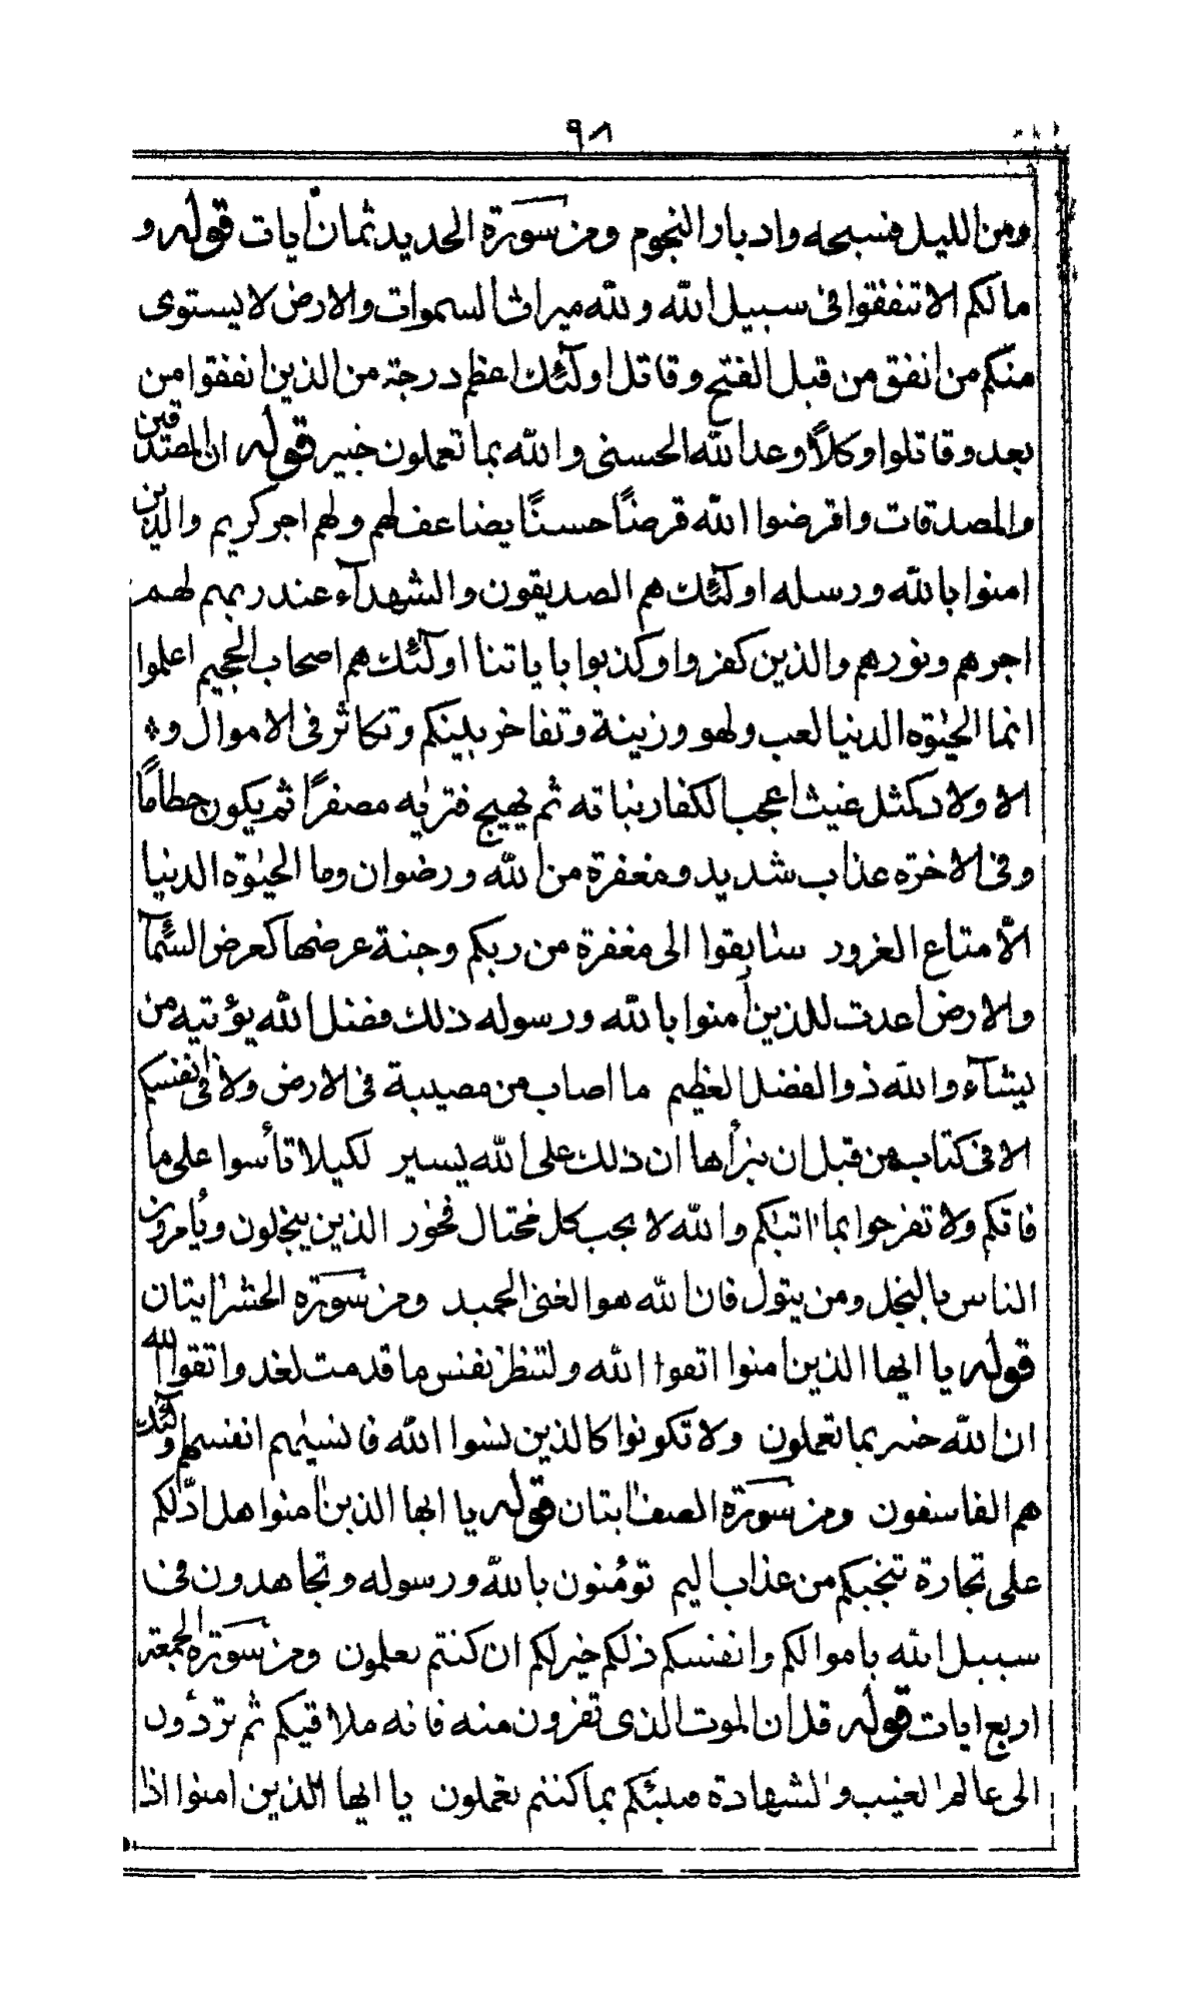 ٩٨
ومن الليل فسبحه وادبار النجوم ومن سورة الحديد ثمان ايات قوله و
مالكم الا تنفقوا فى سبيل الله ولله ميراث السموات والارض لا يستوى
منكم من انفق من قبل الفتح وقاتل اولئك اعظم درجة من الذين انفقوا من
بعد وقاتلوا وكلاً وعد الله الحسنى والله بما تعملون خبير قوله ان المصدقين
والمصدقات واقرضوا الله قرضًا حسنًا يضاعف لهم ولهم اجر كريم والذين
امنوا بالله ورسله اولئك هم الصديقون والشهدآء عند ربهم لهم
اجرهم ونورهم والذين كفروا وكذبوا باياتنا اولئك هم اصحاب الجحيم اعلموا
انما الحيٰوة الدنيا لعب ولهو وزينة وتفاخر بينكم وتكاثر فى الاموال و
الاولاد كمثل غيث اعجب الكفار نباته ثم يهيج فتريٰه مصفرًا ثم يكون حطامًا
وفى الاخرة عذاب شديد ومغفرة من الله ورضوان وما الحيٰوة الدنيا
الّا متاع الغرور سابقوا الى مغفرة من ربكم وجنة عرضها كعرض السّمآء
والارض اعدت للذين آمنوا بالله ورسوله ذلك فضل الله يؤتيه من
يشآء والله ذو الفضل العظيم ما اصاب من مصيبة فى الارض ولا فى انفسكم
الا فى كتاب من قبل ان نبرأها ان ذلك على الله يسير لكيلا تأسوا على ما
فاتكم ولا تفرحوا بما اتيٰكم والله لا يحب كل مختال فخور الذين يبخلون ويأمرون
الناس بالبخل ومن يتول فان الله هو الغنى الحميد ومن سورة الحشر ايتان
قوله يا ايها الذين امنوا اتقوا الله ولتنظر نفس ما قدمت لغد واتقوا الله
ان الله خبير بما تعملون ولا تكونوا كالذين نسوا الله فانسيٰهم انفسهم اولئك
هم الفاسقون ومن سورة الصف ايتان قوله يا ايها الذين امنوا هل ادلكم
على تجارة تنجيكم من عذاب اليم تؤمنون بالله ورسوله وتجاهدون فى
سبيل الله باموالكم وانفسكم ذلكم خير لكم ان كنتم تعلمون ومن سورة الجمعة
اربع ايات قوله قل ان الموت الذى تفرون منه فانه ملاقيكم ثم تردّون
الى عالم الغيب والشهادة فينبئكم بما كنتم تعملون يا ايها الذين امنوا اذا